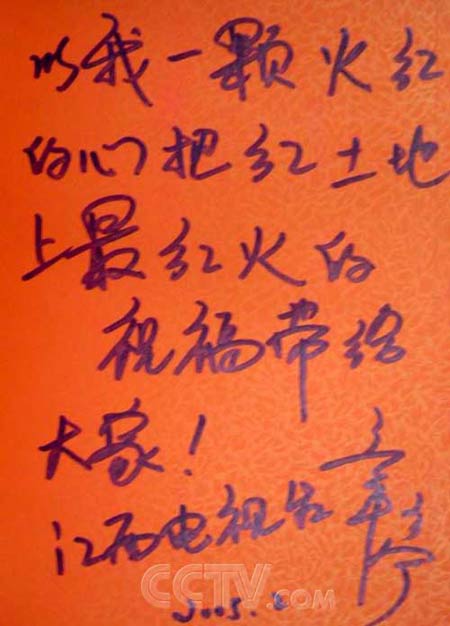 以我一颗火红
的心把红土地
上最红火的
祝福带给
大家！
江西电视台
CCTV.com